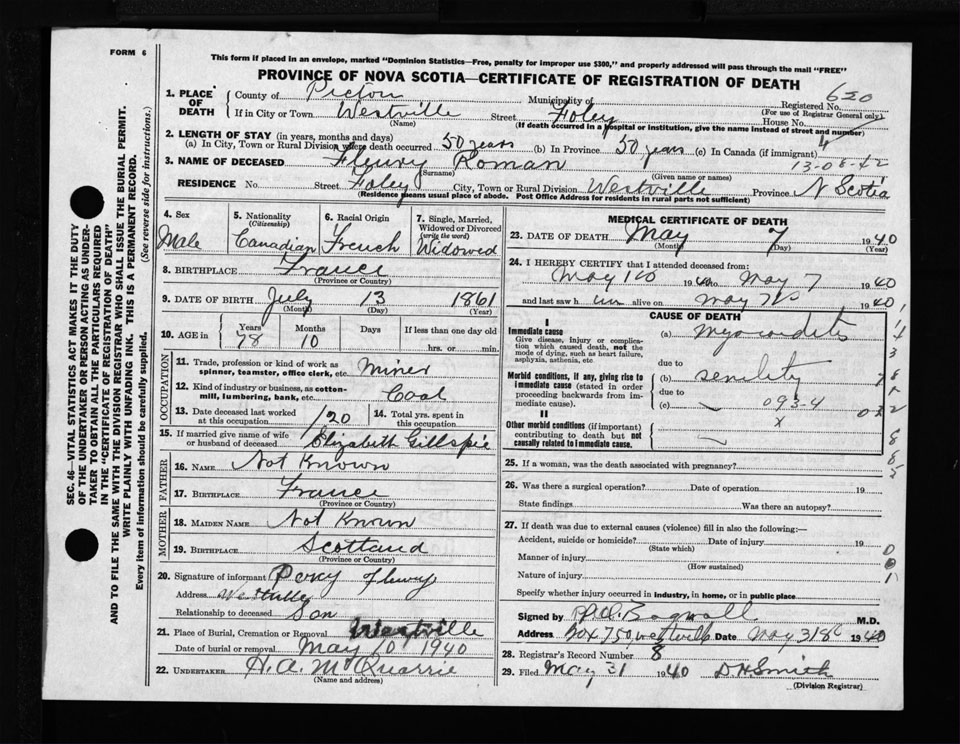 FORM 6
This form if placed in an envelope, marked "Dominion Statistics—Free, penalty for improper use $300," and properly addressed will pass through the mail "FREE"
PROVINCE OF NOVA SCOTIA—CERTIFICATE OF REGISTRATION OF DEATH
1. PLACE OF DEATH County of Pictou Municipality of Registered No. 620
(For use of Registrar General only)
If in City or Town Westville Street Foley House No.
(Name) (If death occurred in a hospital or institution, give the name instead of street and number)
2. LENGTH OF STAY (in years, months and days)
(a) In City, Town or Rural Division where death occurred 50 years (b) In Province 50 years (c) In Canada (if immigrant) 4
13-08-42
3. NAME OF DECEASED Fleury Roman
(Surname) (Given name or names)
RESIDENCE No. Street Foley City, Town or Rural Division Westville Province N Scotia
(Residence means usual place of abode. Post Office Address for residents in rural parts not sufficient)
4. Sex Male
5. Nationality (Citizenship) Canadian
6. Racial Origin French
7. Single, Married, Widowed or Divorced (write the word) Widowed
8. BIRTHPLACE France
(Province or Country)
9. DATE OF BIRTH July 13 1861
(Month) (Day) (Year)
10. AGE in Years 78 Months 10 Days If less than one day old
hrs. or min.
OCCUPATION
11. Trade, profession or kind of work as spinner, teamster, office clerk, etc. Miner
12. Kind of industry or business, as cotton-mill, lumbering, bank, etc. Coal
13. Date deceased last worked at this occupation 1920
14. Total yrs. spent in this occupation
15. If married give name of wife or husband of deceased Elizabeth Gillespie
FATHER
16. NAME Not Known
17. BIRTHPLACE France
(Province or Country)
MOTHER
18. MAIDEN NAME Not Known
19. BIRTHPLACE Scotland
(Province or Country)
20. Signature of informant Percy Fleury
Address Westville
Relationship to deceased Son
21. Place of Burial, Cremation or Removal Westville
Date of burial or removal May 10, 1940
22. UNDERTAKER H. A. McQuarrie
(Name and address)
MEDICAL CERTIFICATE OF DEATH
23. DATE OF DEATH May 7 1940
(Month) (Day) (Year)
24. I HEREBY CERTIFY that I attended deceased from:
May 1 1940 to May 7 1940
and last saw him alive on May 7 1940
CAUSE OF DEATH
I
Immediate cause
Give disease, injury or complication which caused death, not the mode of dying, such as heart failure, asphyxia, asthenia, etc.
(a) Myocarditis
due to
Morbid conditions, if any, giving rise to immediate cause (stated in order proceeding backwards from immediate cause).
(b) senility
due to
(c) 093-4
x
II
Other morbid conditions (if important) contributing to death but not causally related to immediate cause.
25. If a woman, was the death associated with pregnancy?
26. Was there a surgical operation? Date of operation 19
State findings Was there an autopsy?
27. If death was due to external causes (violence) fill in also the following:—
Accident, suicide or homicide? Date of injury 19
(State which)
Manner of injury
(How sustained)
Nature of injury
Specify whether injury occurred in industry, in home, or in public place
Signed by Bagnall M.D.
Address Box 750, Westville Date May 31st 1940
28. Registrar's Record Number 8
29. Filed May 31 1940 D H Smith
(Division Registrar)
SEC. 46—VITAL STATISTICS ACT MAKES IT THE DUTY
OF THE UNDERTAKER OR PERSON ACTING AS UNDER-
TAKER TO OBTAIN ALL THE PARTICULARS REQUIRED
IN THE "CERTIFICATE OF REGISTRATION OF DEATH"
AND TO FILE THE SAME WITH THE DIVISION REGISTRAR WHO SHALL ISSUE THE BURIAL PERMIT.
WRITE PLAINLY WITH UNFADING INK. THIS IS A PERMANENT RECORD.
Every item of information should be carefully supplied. (See reverse side for instructions.)